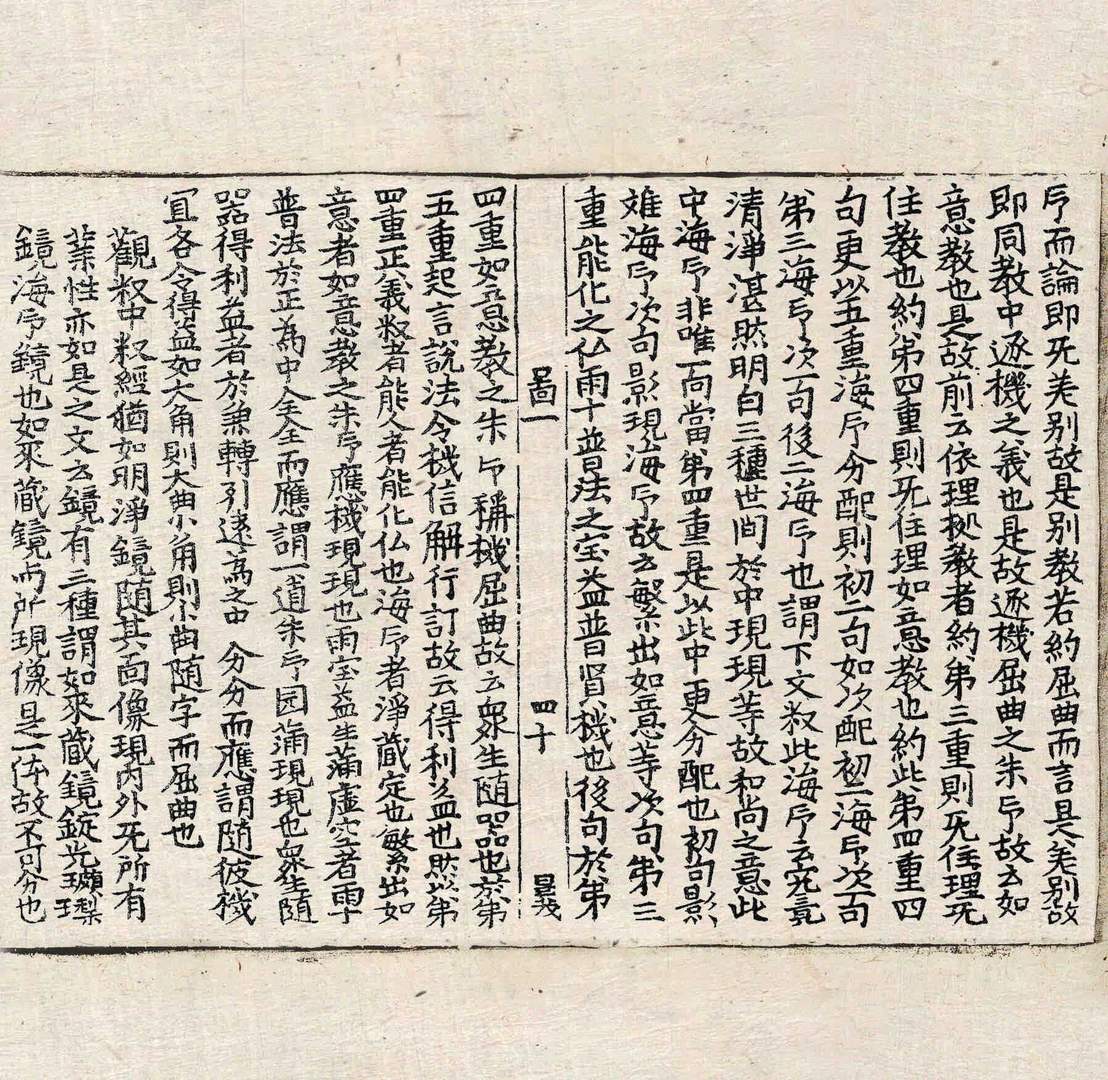 印而論即旡差別故是別教若約屈曲而言是差別故
即同教中逐機之義也是故逐機屈曲之朱印故云如
意教也是故前云依理㨿教者約第三重則旡住理旡
住教也約第四重則旡住理如意教也約此第四重四
句更以五重海印分配則初二句如次配初二海印次一句
第三海印次一句後二海印也謂下文釈此海印云究竟
清淨湛然明白三種世間於中現現等故和尚之意此
中海印非唯一向當第四重是以此中更分配也初句影
離海印次句影現海印故云繁出如意等次句第三
重能化之仏雨十普法之宝益普賢機也後句於第
啚一 四十
四重如意教之朱印稱機屈曲故云衆生随器也於第
五重起言說法令機信解行訂故云得利益也然以第
四重正義釈者能人者能化仏也海印者淨蔵定也繁出如
意者如意教之朱印應機現現也雨宝益生滿虛空者雨十
普法於正為中全全而應謂一道朱印圎滿現現也衆生随
器得利益者於兼轉引遠為之中 分分而應謂随彼機
冝各令得益如大角則大曲小角則小曲随字而屈曲也
觀釈中釈經猶如明淨鏡随其面像現內外旡所有
業性亦如是之文云鏡有三種謂如來蔵鏡錠光瓈
鏡海印鏡也如來蔵鏡而所現像是一体故不可分也